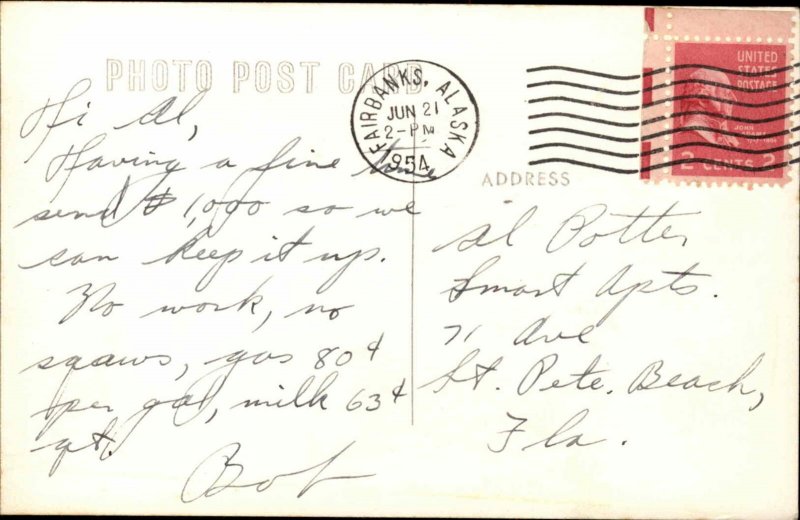 PHOTO POST CARD
FAIRBANKS, ALASKA
JUN 21
2-PM
1954
UNITED
STATES
POSTAGE
JOHN
ADAMS
2 CENTS 2
ADDRESS
Hi Al,
Having a fine time
send $1,000 so we
can keep it up.
No work, no
sqaws, gas 80¢
per gal, milk 63¢
qt.
Bob
Al Potter
Smart Apts.
71 Ave
St. Pete. Beach,
Fla.